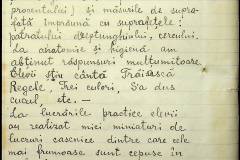 procentului) și măsurile de supra-
față împreună cu suprafețele:
patratului dreptunghiului, cercului.
La anatomie și higienă am
obținut răspunsuri mulțumitoare
Elevii știu cântă Trăiască
Regele, Trei culori, S'a dus
cucul, etc. —
La lucrările practice elevii
au realizat mici miniaturi de
lucruri casnice dintre care cele
mai frumoase sunt expuse în